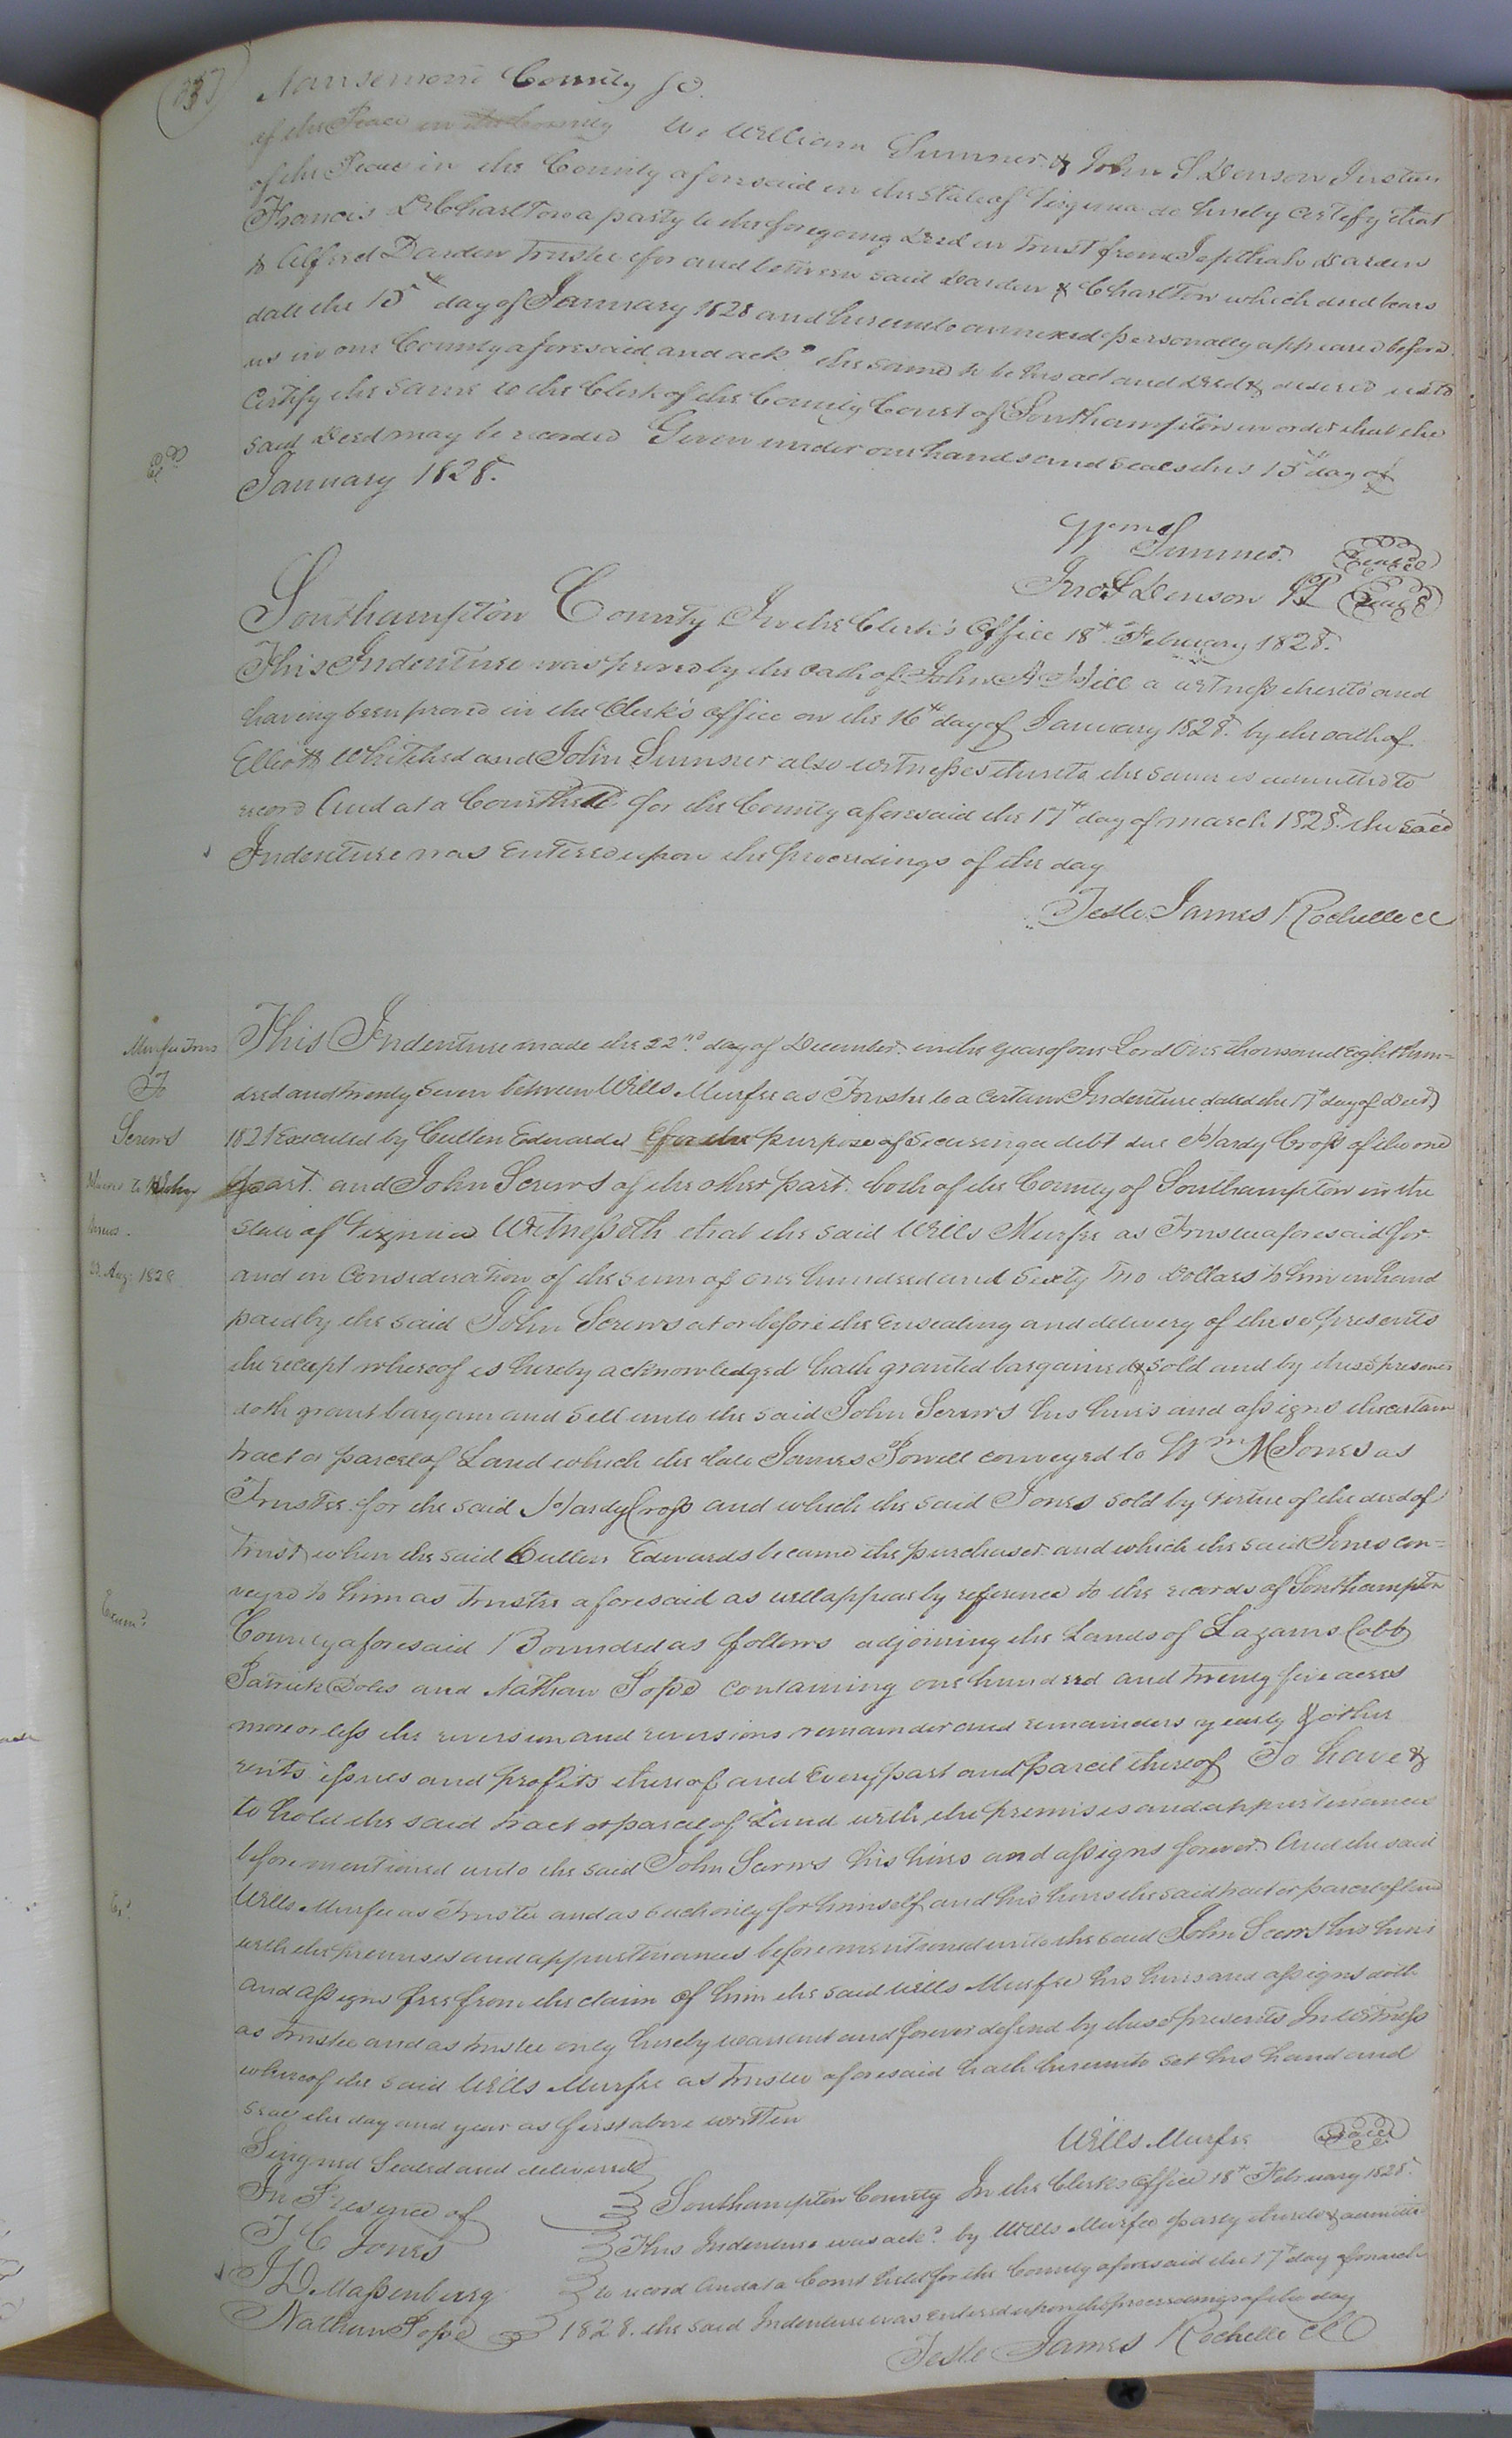 Nansemond County Sc.
of the Peace in the County We William Sumner & John S Denson Justices
of the Peace in the County aforesaid in the State of Virginia do hereby certify that
Francis D Charlton a party to the foregoing deed in trust from Jepthah Darden
to Alfred Darden trustee for and between said Darden & Charlton which deed bears
date the 15th day of January 1828 and hereunto annexed personally appeared before
us in our County aforesaid and ackd the same to be his act and deed & desired us to
certify the same to the Clerk of the County Court of Southampton in order that the
said Deed may be recorded Given under our hands and seals this 15th day of
January 1828.
Wm Sumner Seal
Jno S Denson Seal
Southampton County In the Clerk's Office 18th February 1828.
This Indenture was proved by the oath of John A Hill a witness thereto and
having been proved in the Clerk's office on the 16th day of January 1828. by the oath of
Elliott Whitehed and John Sumner also witnesses thereto the same is admitted to
record And at a Court held for the County aforesaid the 17th day of march 1828. the said
Indenture was entered upon the proceedings of the day
Teste James Rochelle CC
Murfee Trus
To
Screws
23 Aug. 1828
This Indenture made the 22nd day of December in the year of our Lord One thousand Eight hun=
dred and twenty seven between Wills Murfee as Trustee to a certain Indenture dated the 17th day of Decr
1821 Executed by Cullen Edwards for the purpose of securing a debt due Hardy Cross of the one
part. and John Screws of the other part. both of the County of Southampton in the
State of Virginia Witnesseth that the said Wills Murfee as Trustee aforesaid for
and in Consideration of the sum of one hundred and Sixty two Dollars to him in hand
paid by the said John Screws at or before the ensealing and delivery of these presents
the receipt whereof is hereby acknowledged hath granted bargained & sold and by these presents
doth grant bargain and sell unto the said John Screws his heirs and assigns the certain
tract or parcel of Land which the late James Powell conveyed to Wm M Jones as
Trustee for the said Hardy Cross and which the said Jones sold by virtue of the deed of
trust when the said Cullen Edwards became the purchaser and which the said Jones con=
veyed to him as trustee aforesaid as will appear by reference to the records of Southampton
Exam.d
County aforesaid Bounded as follows adjoining the Lands of Lazarus Cobb
Patrick Doles and Nathan Pope containing one hundred and twenty five acres
more or less the reversion and reversions remainder and remainders yearly & other
rents issues and profits thereof and every part and parcel thereof To have &
to hold the said tract or parcel of Land with the premises and appurtenances
before mentioned unto the said John Screws his heirs and assigns forever. And the said
Wills Murfee as Trustee and as such only for himself and his heirs the said tract or parcel of land
with the premises and appurtenances before mentioned unto the said John Screws his heirs
and assigns free from the claim of him the said Wills Murfee his heirs and assigns doth
as trustee and as trustee only hereby warrant and forever defend by these presents In Witness
whereof the said Wills Murfee as trustee aforesaid hath hereunto set his hand and
seal the day and year as first above written
Wills Murfee Seal
Singned Sealed and delivered
In Presence of
T C Jones
J D Massenburg
Nathan Pope
Southampton County In the Clerks Office 18th February 1828.
This Indenture was ackd by Wills Murfee party thereto & admitted
to record And at a Court held for the County aforesaid the 17th day of march
1828. the said Indenture was entered upon the proceedings of the day
Teste James Rochelle CC